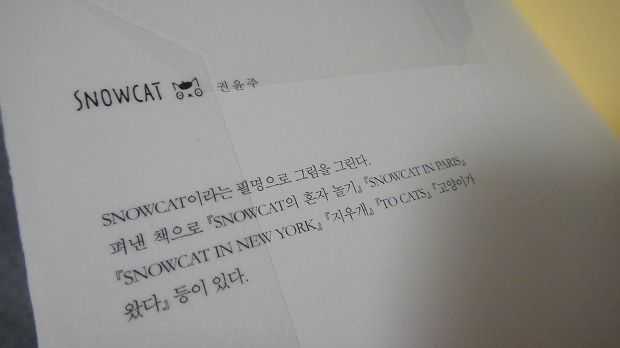 SNOWCAT 권윤주
SNOWCAT이라는 필명으로 그림을 그린다.
펴낸 책으로 『SNOWCAT의 혼자 놀기』 『SNOWCAT IN PARIS』
『SNOWCAT IN NEW YORK』 『지우개』 『TO CATS』 『고양이가
왔다』 등이 있다.